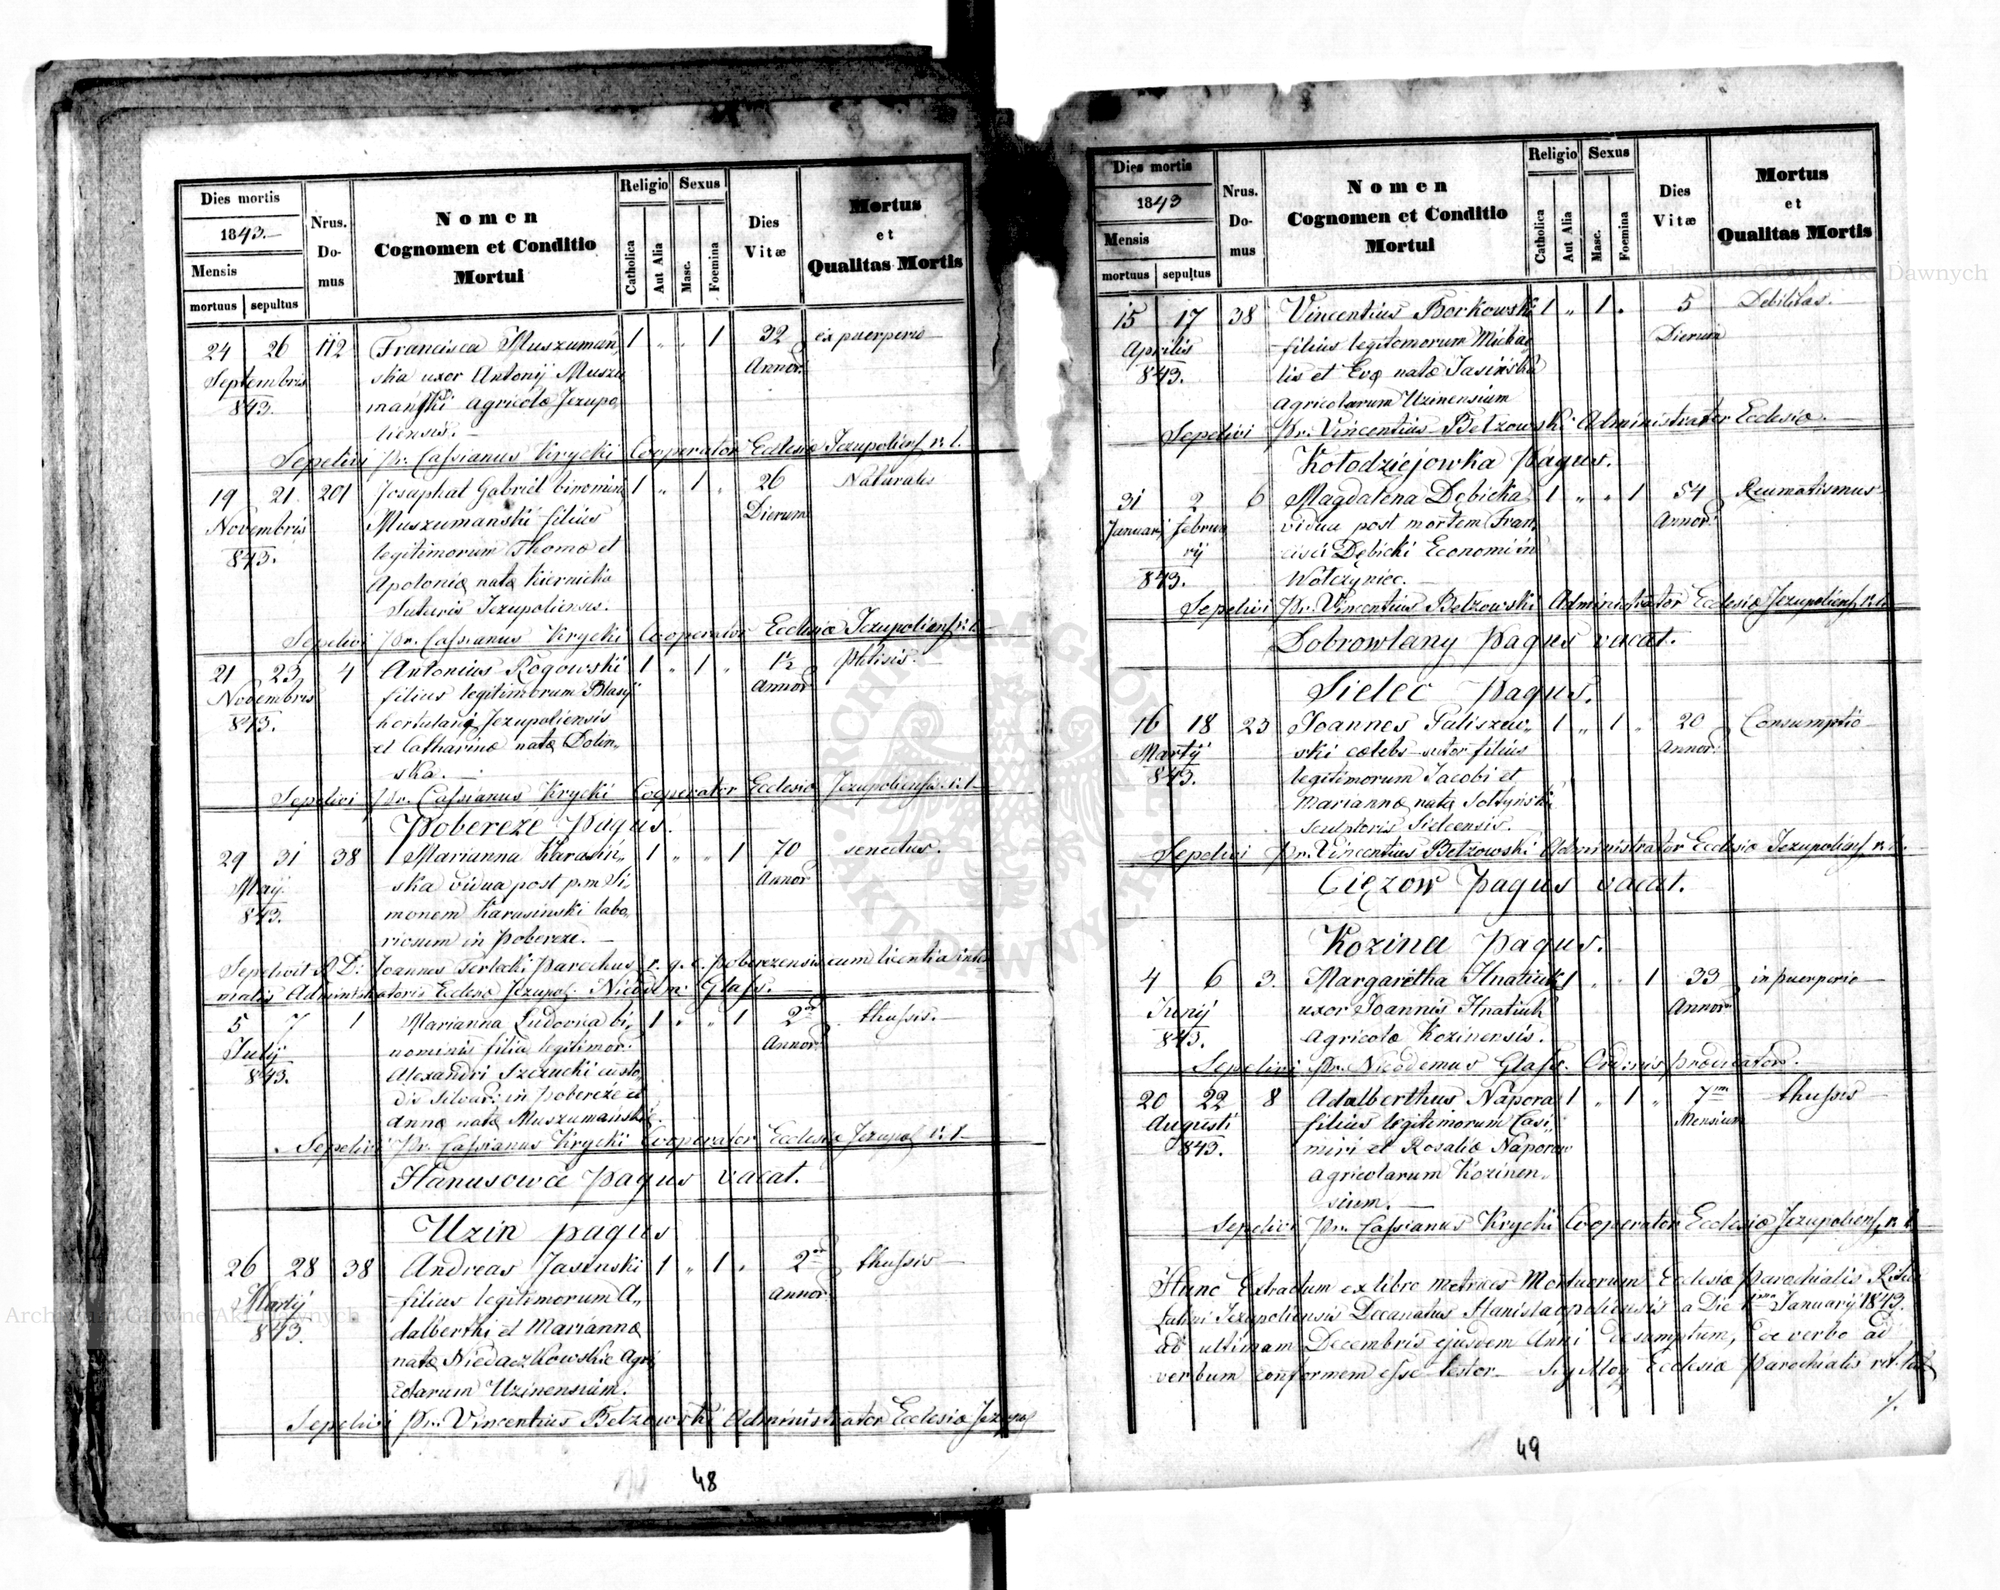 Dies mortis
1843.
Mensis
mortuus sepultus
Nrus. Domus
Nomen
Cognomen et Conditio
Mortui
Religio
Catholica
Aut Alia
Sexus
Masc.
Foemina
Dies Vitæ
Mortus
et
Qualitas Mortis
24 26 112 Francisca Muszumań, 1 „ „ 1 32 ex puerperio
Septembris ska uxor Antonij Muszu Annor.
843. mański Agricolæ Jezupo,
liensis.
Sepelivi Pr. Cassianus Krycki Cooperator Ecclesiæ Jezupoliens r. l.
19 21 201 Josaphat Gabriel binomini, 1 „ 1 „ 26 Naturalis
Novembris Muszumanski filius Dierum
843. legitimorum Thomæ et
Apoloniæ natæ Kiernicka
Sutoris Jezupoliensis.
Sepelivi Pr. Cassianus Krycki Cooperator Ecclesiæ Jezupoliens r. l.
21 23 4 Antonius Rogowski 1 „ 1 „ 1½ phtisis.
Novembris filius legitimorum Blasij Annor
843. hortulani Jezupoliensis
et Catharinæ natæ Dolin„
ska.
Sepelivi Pr. Cassianus Krycki Cooperator Ecclesiæ Jezupoliensis r. l.
Pobereze Pagus.
29 31 38 Marianna Karasiń„ 1 „ „ 1 70 senectus.
Maij ska vidua post p.m Si„ Annor
843. monem Karasinski labo,
riosum in Pobereze.
Sepelivit A. D: Joannes Terlecki Parochus r. g. c. Poberezensis cum licentia inter
malis Administratoris Ecclesiæ Jezupol. Nicodem: Glass.
5 7 1 Marianna Ludovica bi„ 1 „ „ 1 2 thussis.
Julij nominis filia legitimor: Annor
843. Alexandri Szczucki custo„
dis silvar: in Pobereze et
Annæ natæ Muszumańskie.
Sepelivi Pr. Cassianus Krycki Cooperator Ecclesiæ Jezupol r. l.
Hanusowce Pagus vacat.
Uzin pagus
26 28 38 Andreas Jasinski 1 „ 1 „ 2 thussis
Martij filius legitimorum A„ annor
843. dalberthi et Mariannæ
natæ Niedaczkowskie Agri
colarum Uzinensium.
Sepelivi Pr. Vincentius Betzowski Administrator Ecclesiæ Jezupol
48
Dies mortis
1843
Mensis
mortuus sepultus
Nrus. Domus
Nomen
Cognomen et Conditio
Mortui
Religio
Catholica
Aut Alia
Sexus
Masc.
Foemina
Dies Vitæ
Mortus
et
Qualitas Mortis
15 17 38 Vincentius Borkowski 1 „ 1 „ 5 Debilitas.
Aprilis filius legitomorum Micha Dierum
843. lis et Evæ natæ Jasińska
Agricolarum Uzinensium
Sepelivi Pr. Vincentius Betzowski Administrator Ecclesiæ
Kołodziejowka Pagus.
31 2 6 Magdalena Dębicka 1 „ „ 1 54 Reumatismus
Januarij februa vidua post mortem Fran, Annor.
rij cisci Dębicki Economi in
843. Wołczyniec.
Sepelivi Pr. Vincentius Betzowski Administrator Ecclesiæ Jezupoliens r. l.
Dobrowlany Pagus vacat.
Sielec Pagus.
16 18 23 Joannes Paliszew„ 1 „ 1 „ 20 Consumptio
Martij ski cœlebs sutor filius Annor.
843. legitimorum Jacobi et
Mariannæ natæ Sołtyńskie
sculptoris Sielcensis.
Sepelivi Pr. Vincentius Betzowski Administrator Ecclesiæ Jezupoliens r. l.
Ciężow Pagus vacat.
Kozina Pagus.
4 6 3. Margaretha Hnatiuk 1 „ „ 1 33 in puerperio
Junij uxor Joannis Hnatiuk Annor
843. Agricolæ Kozinensis.
Sepelivi Pr. Nicodemus Glass. Ordinis Prædicatorū.
20 22 8 Adalberthus Napora 1 „ 1 „ 7em thussis
Augusti filius legitimorum Casi„ Mensium
843. miri et Rosaliæ Naporow
Agricolarum Kozinen„
sium.
Sepelivi Pr. Cassianus Krycki Cooperator Ecclesiæ Jezupoliens r. l.
Hunc Extractum ex libro metrices Mortuorum Ecclesiæ Parochialis Ritus
Latini Jezupoliensis Decanatus Stanislaopoliensis a Die 1ma Januarij 1843.
ad ultimam Decembris ejusdem Anni desumptum, de verbo ad
verbum conformem esse testor Sigilloq Ecclesiæ Parochialis rit. lat
49
Archiwum Główne Akt Dawnych
Archiwum Główne Akt Dawnych
ARCHIWUM GŁÓWNE AKT DAWNYCH